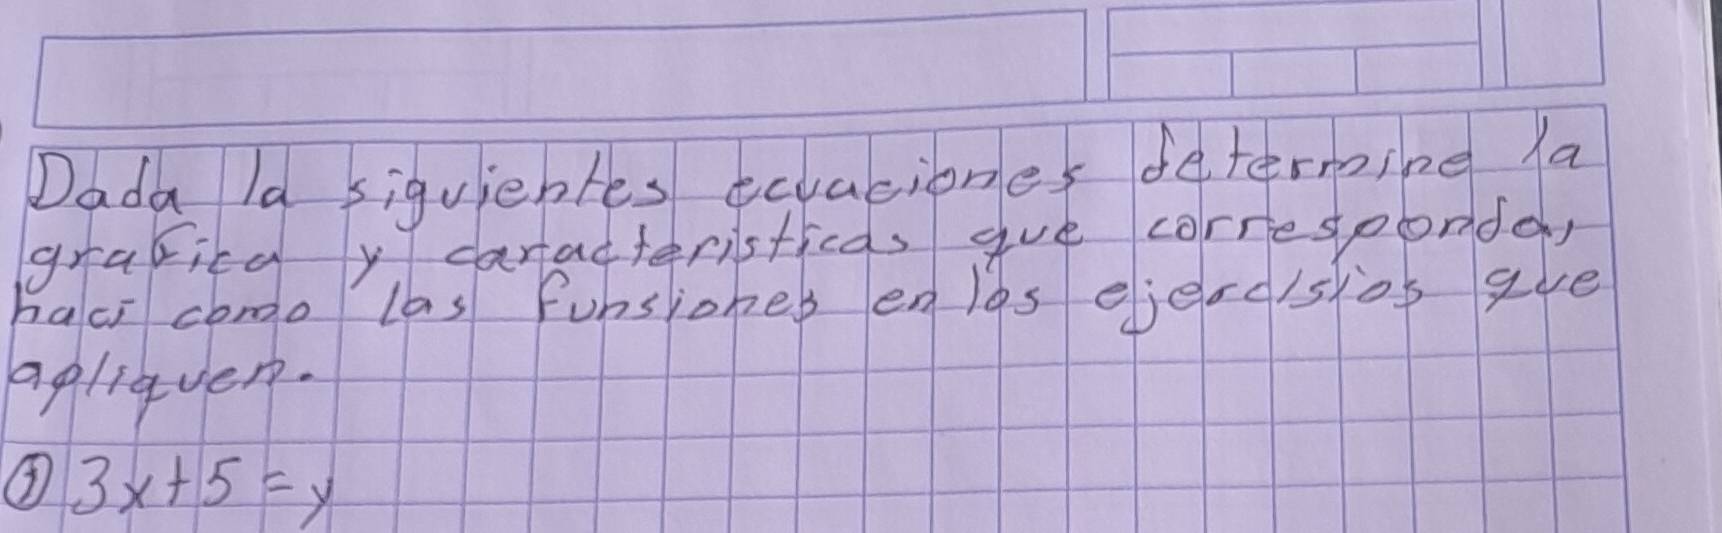 Dada la siguientes ecuaciones determine la
grafica y caracteristicas que corresponda,
haci como las funsiones en los ejercisios que
apliquen.
① 3x+5=y